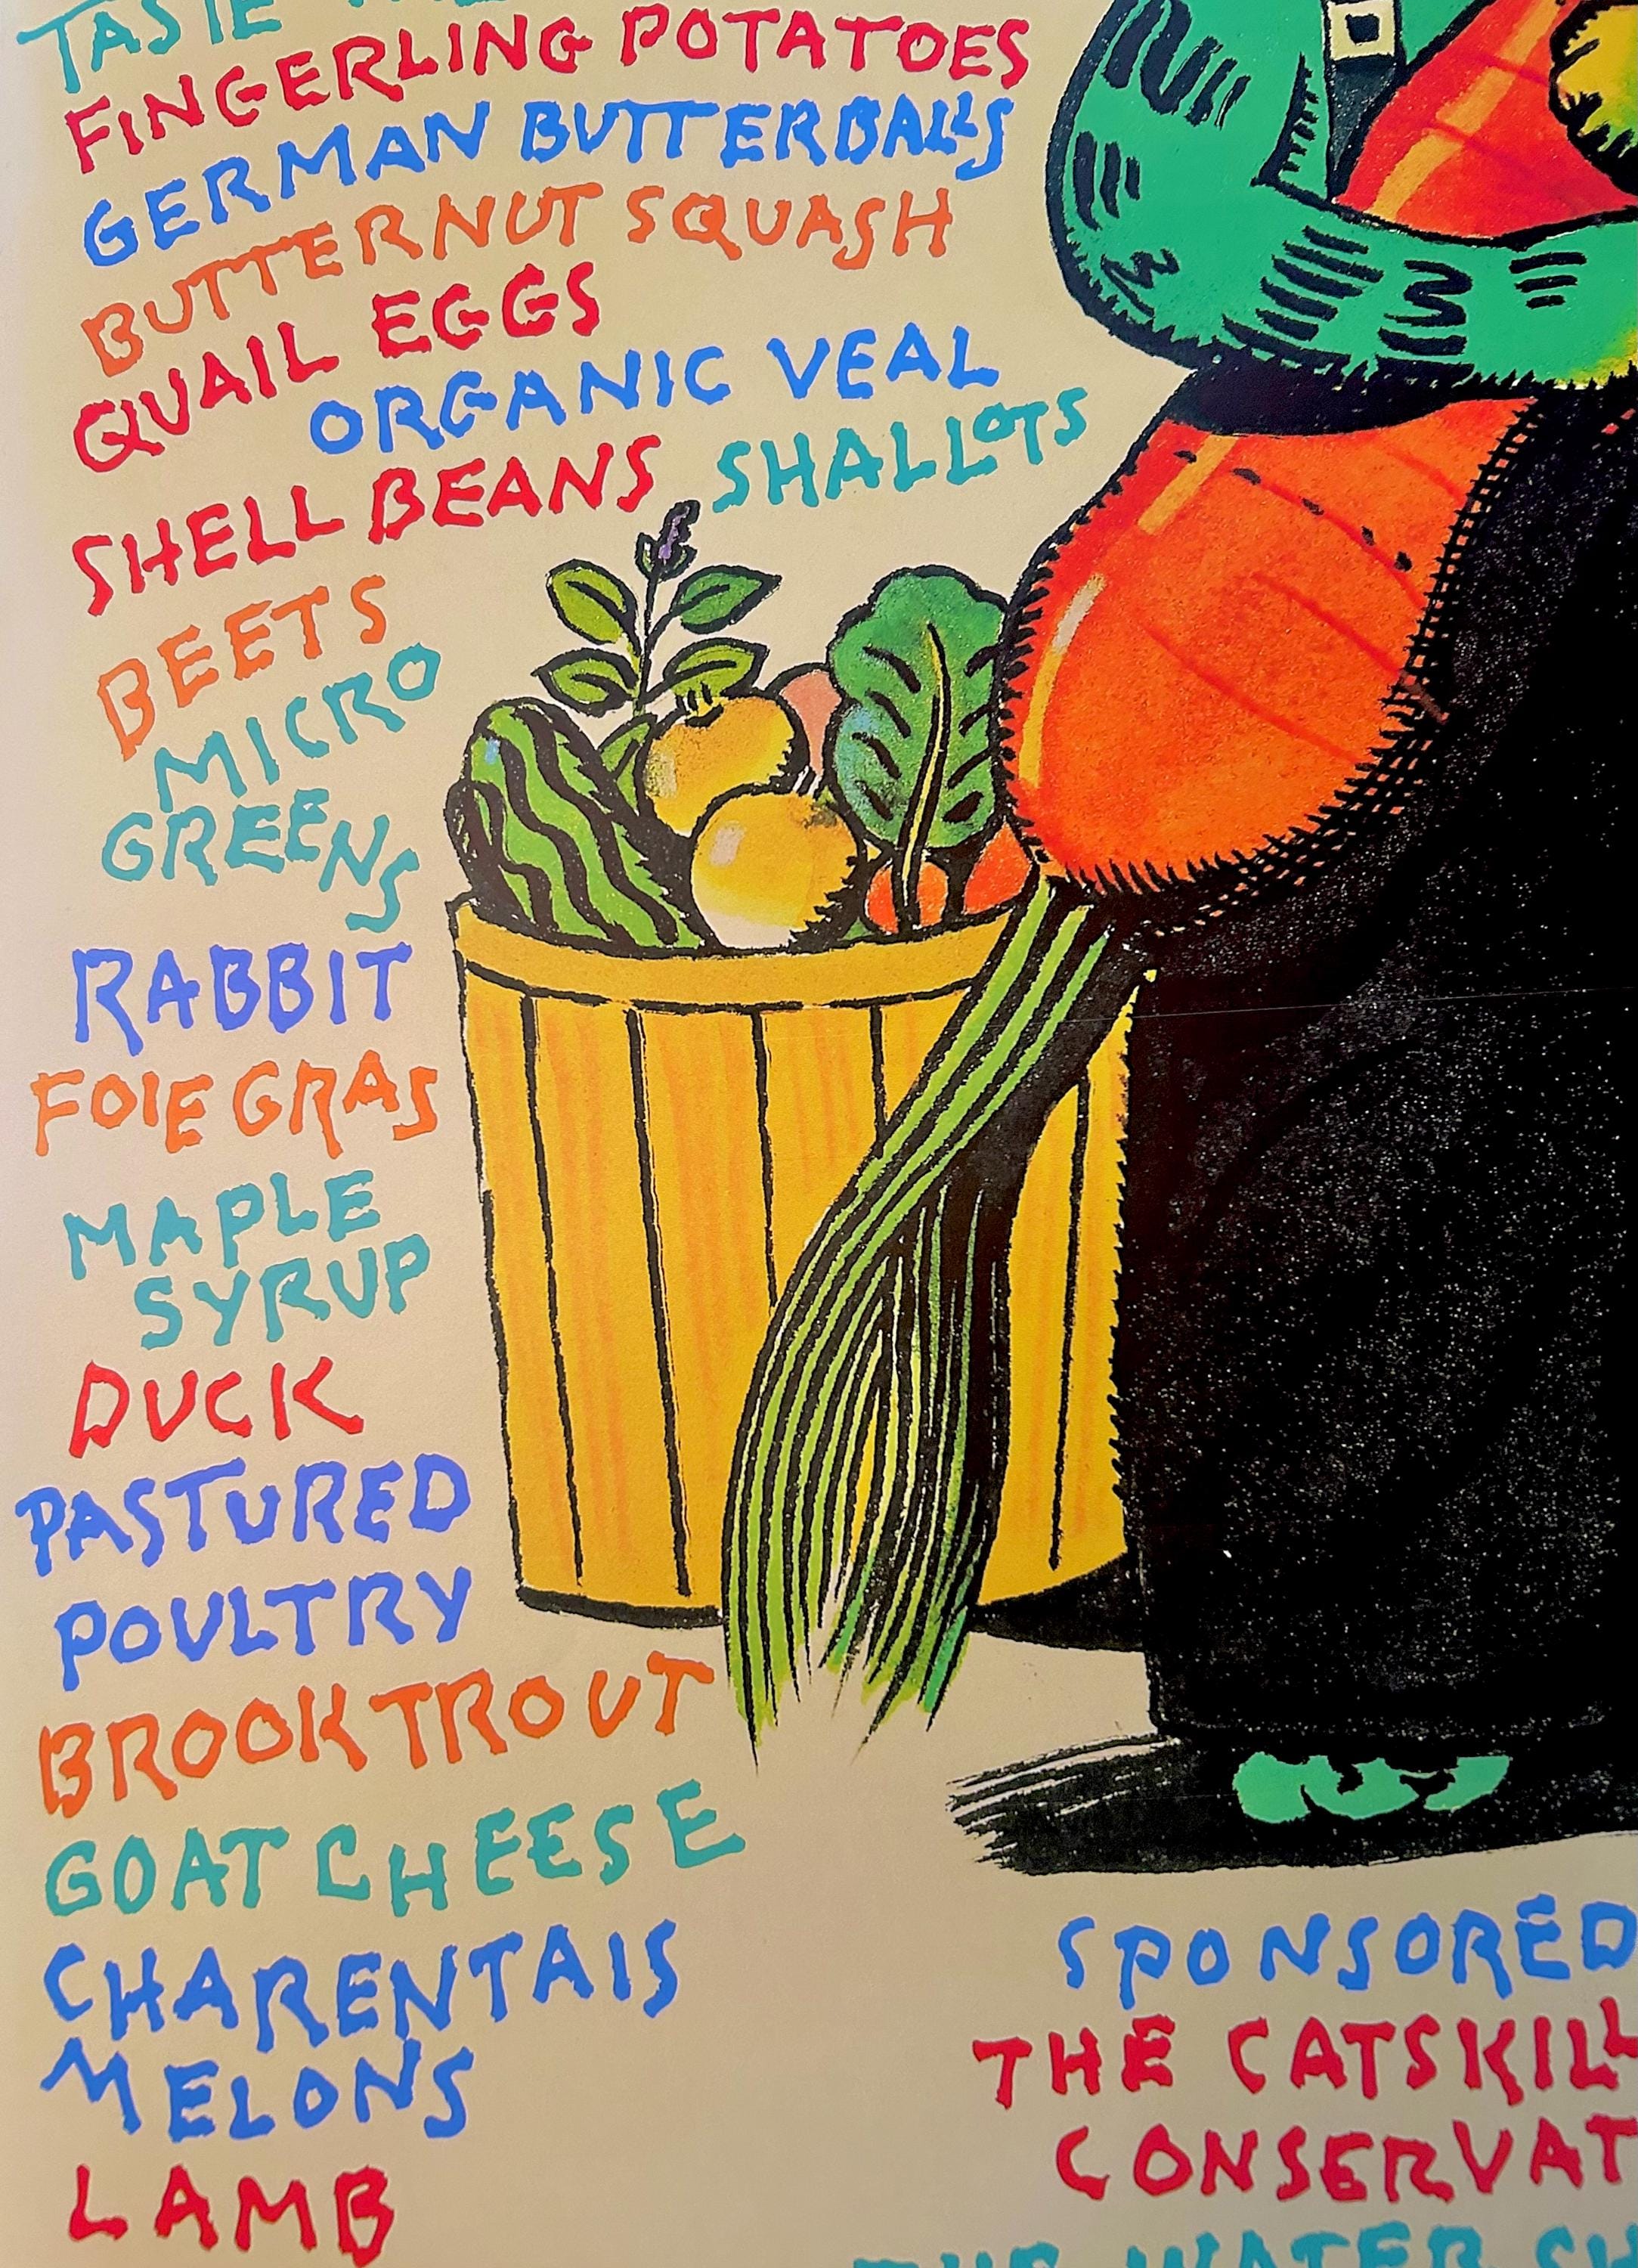 TASTE THE
FINGERLING POTATOES
GERMAN BUTTERBALLS
BUTTERNUT SQUASH
QUAIL EGGS
ORGANIC VEAL
SHELL BEANS SHALLOTS
BEETS
MICRO
GREENS
RABBIT
FOIE GRAS
MAPLE
SYRUP
DUCK
PASTURED
POULTRY
BROOK TROUT
GOAT CHEESE
CHARENTAIS
MELONS
LAMB
SPONSORED
THE CATSKILL
CONSERVAT
THE WATER